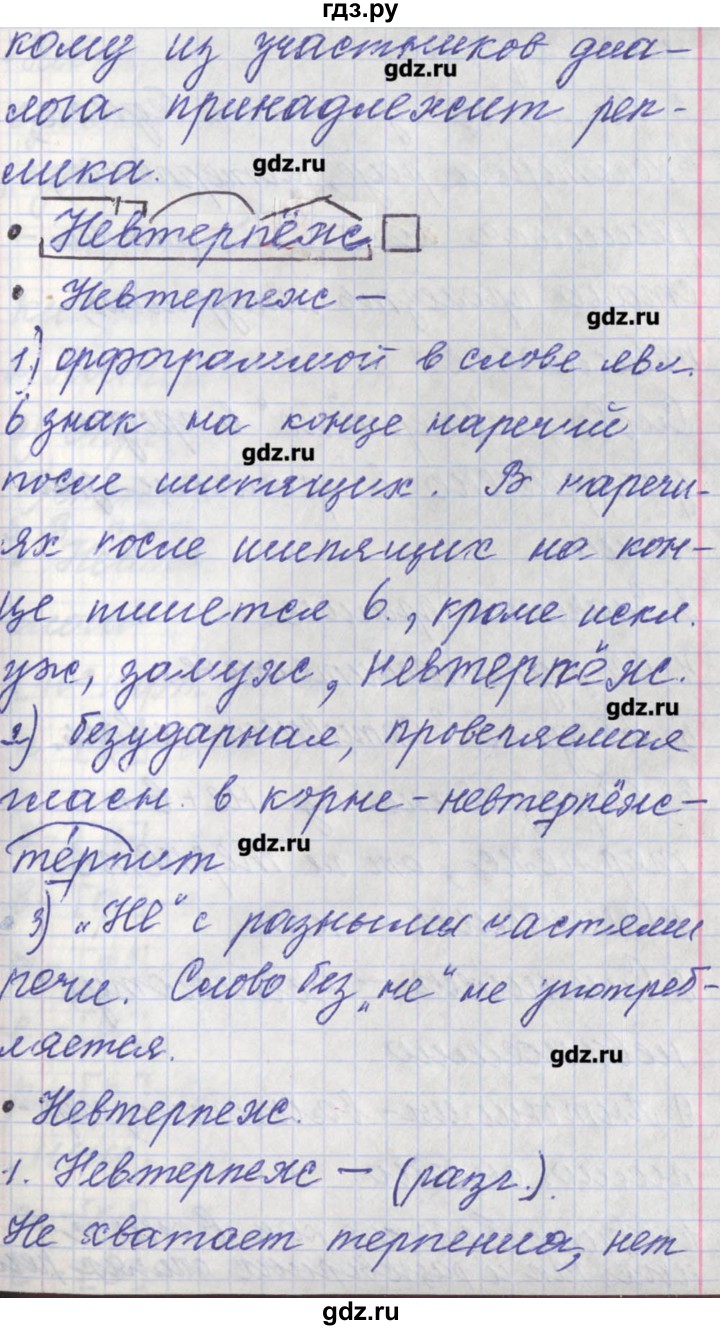 гдз.ру
кому из участников диа-
gdz.ru
лога принадлежит реп-
лика.
gdz.ru
• Невтерпёж
• Невтерпеж —
gdz.ru
1) орфограммой в слове явл.
ь знак на конце наречий
gdz.ru
после шипящих. В наречи-
ях после шипящих на кон-
це пишется ь., кроме искл.
уж, замуж, невтерпёж.
gdz.ru
2) безударная, проверяемая
гласн. в корне - невтерпёж -
gdz.ru
терпит
3) „Не“ с разными частями
речи. Слово без „не“ не употреб-
ляется.
gdz.ru
• Невтерпеж.
1. Невтерпеж — (разг.).
Не хватает терпения, нет
gdz.ru